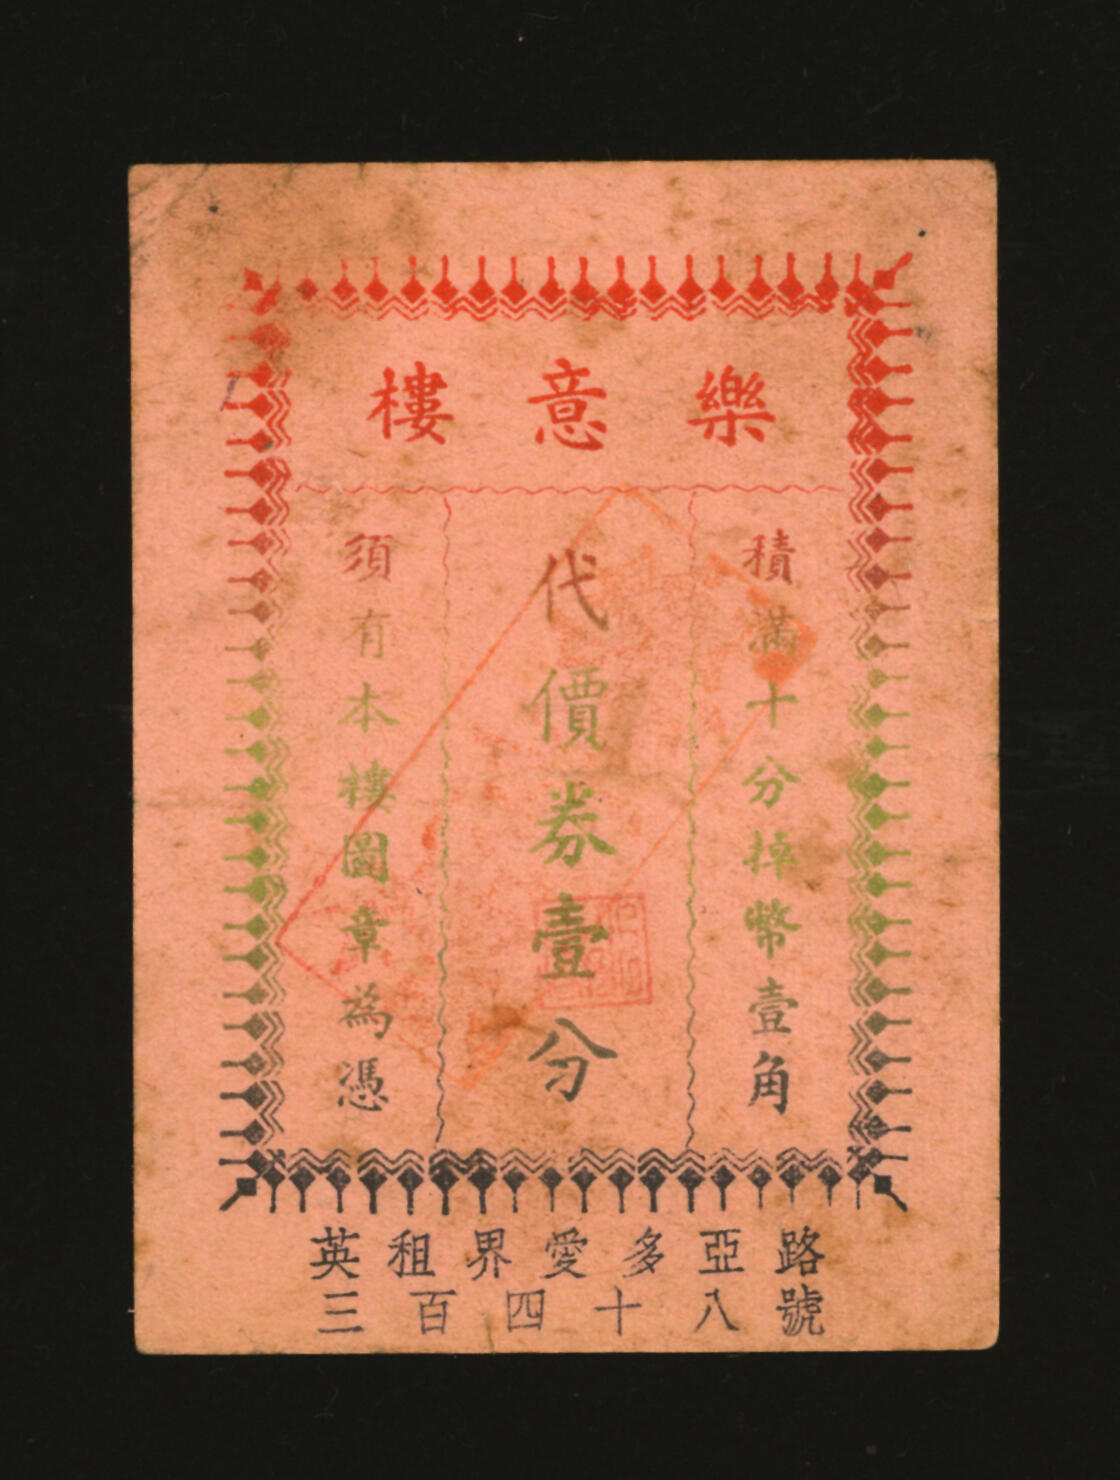 樂意樓
積滿十分掉幣壹角
代價券壹分
須有本樓圖章為憑
英租界愛多亞路
三百四十八號